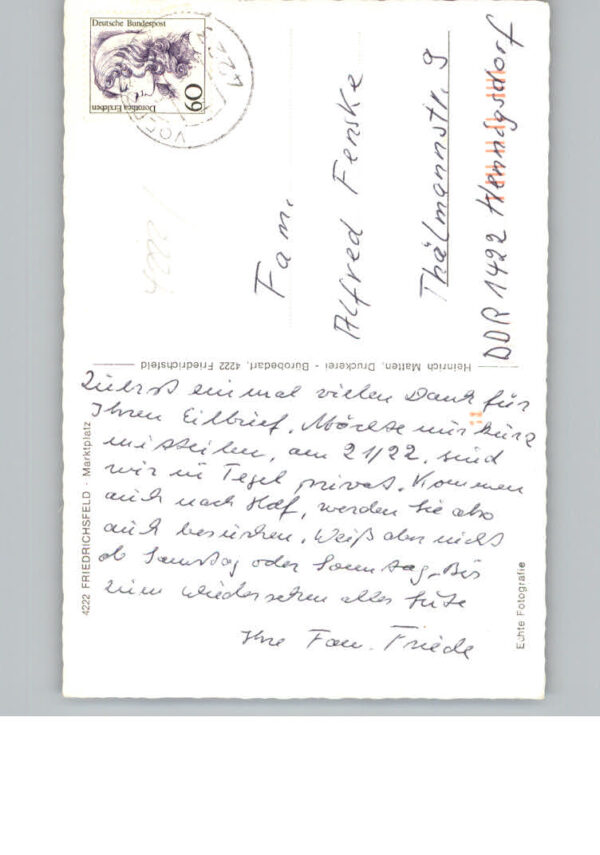 Deutsche Bundespost
Dorothea Erxleben
60
Fam.
Alfred Fenske
Thälmannstr. 9
DDR 1422 Hennigsdorf
Heinrich Matten, Druckerei - Bürobedarf, 4222 Friedrichsfeld
Zuerst einmal vielen Dank für
Ihren Eilbrief. Möchte nur kurz
mitteilen, am 21/22. sind
wir in Tegel privat. Kommen
auch nach Hdf, werden Sie also
auch besuchen. Weiß aber nicht
ob Samstag oder Sonntag. Bis
zum Wiedersehen alles Gute
Ihre Fam. Friede
4222 FRIEDRICHSFELD - Marktplatz
Echte Fotografie